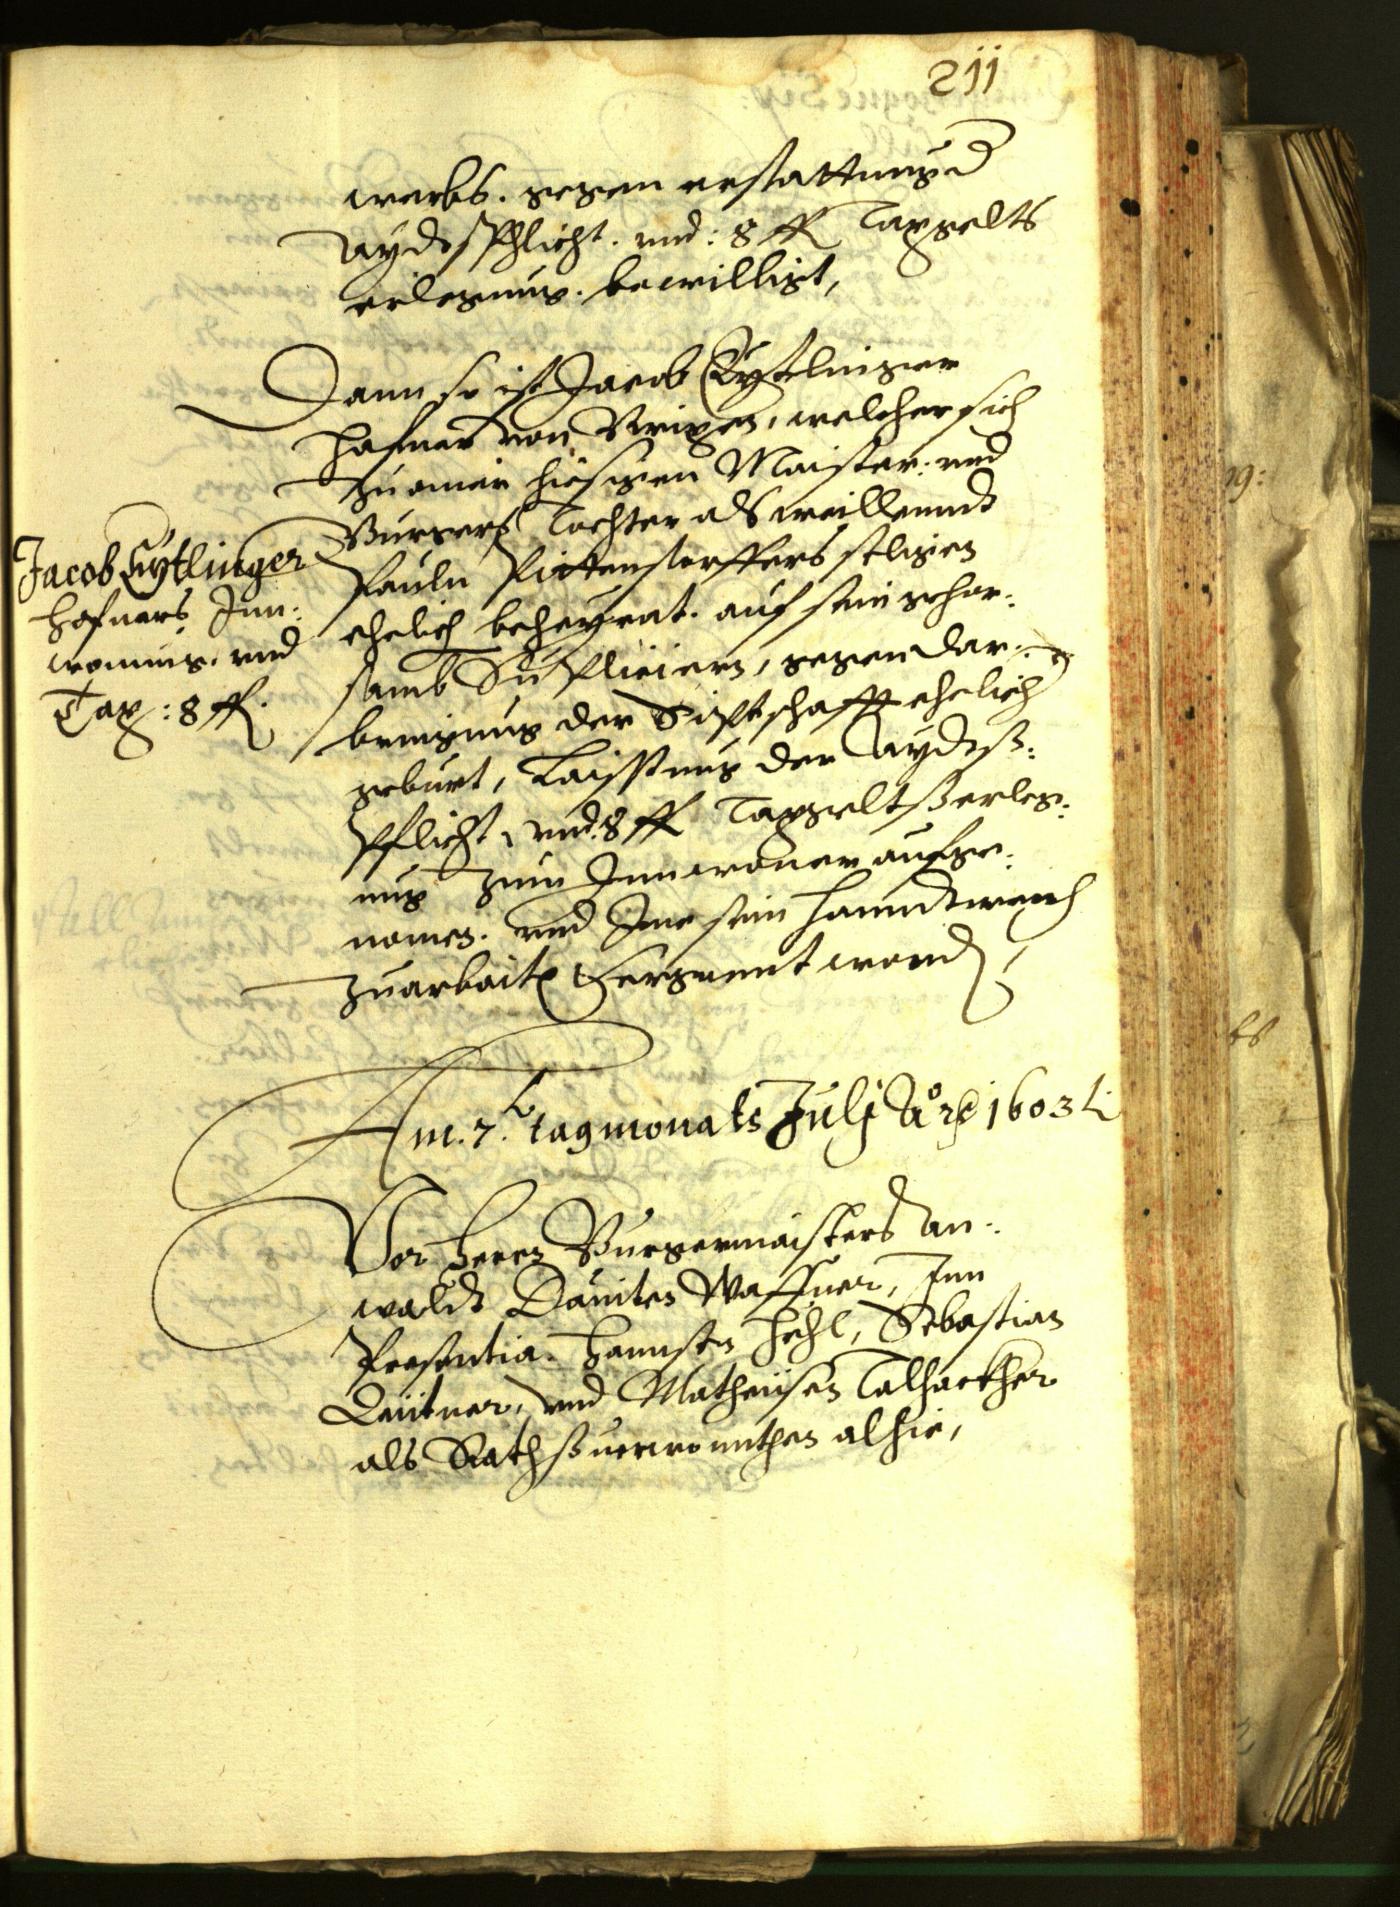 211
werbs. gegen erstattung d
Aydsphlicht. und: 8 fl Taxgelts
erlegung. bewilligt,
Dann so ist Jacob Eytlinger
hafner von Brixen, welcher sich
zu ainer hiesigen Maister: und
Burgers Tochter als weillenndt
Pauln Pittenstorffers seligen
ehelich beheyrat. auf sein gehor:
samb Supliciern, gegen dar:
bringung der Sipschafft ehelich
geburt, Laisstung der Aydß:
pflicht, und 8 fl Taxgeltß erleg:
ung zum Innwoner aufge:
nomen. und Ime sein hanndtwerch
zuarbaiten vergunnt word,
Jacob Eytlinger
hafners Inn:
wonung. und
Tax: 8 fl.
Am. 7. tag monats Julj Ao 1603 ti
Vor herrn Burgermaisters An:
waldt Dauiten Waffner, Inn
Presentia. hannsen hehl, Sebastian
Leitner, und Matheüsen Talhackher
als Rathßverwonnthen alhie,